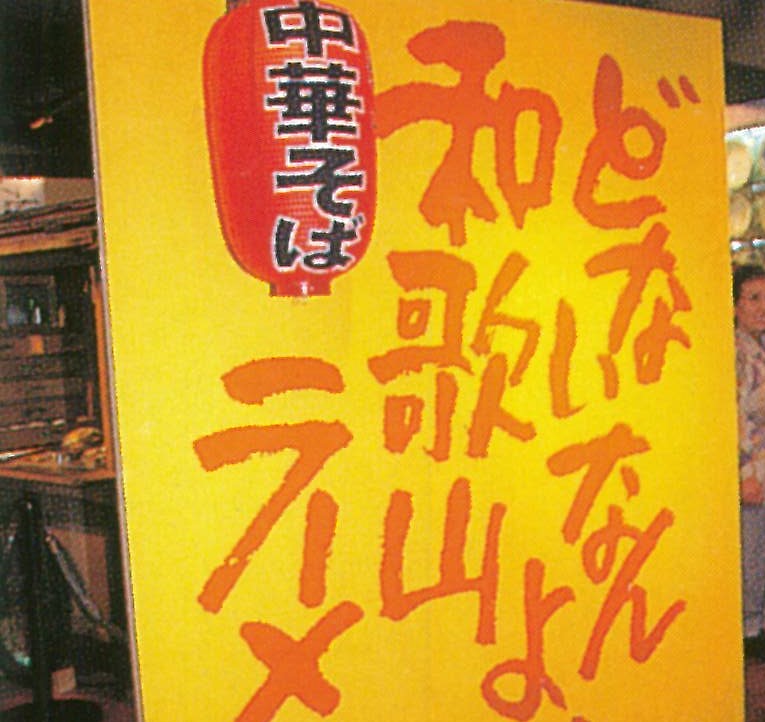 どないなんよ
和歌山
中華そば
ラーメ